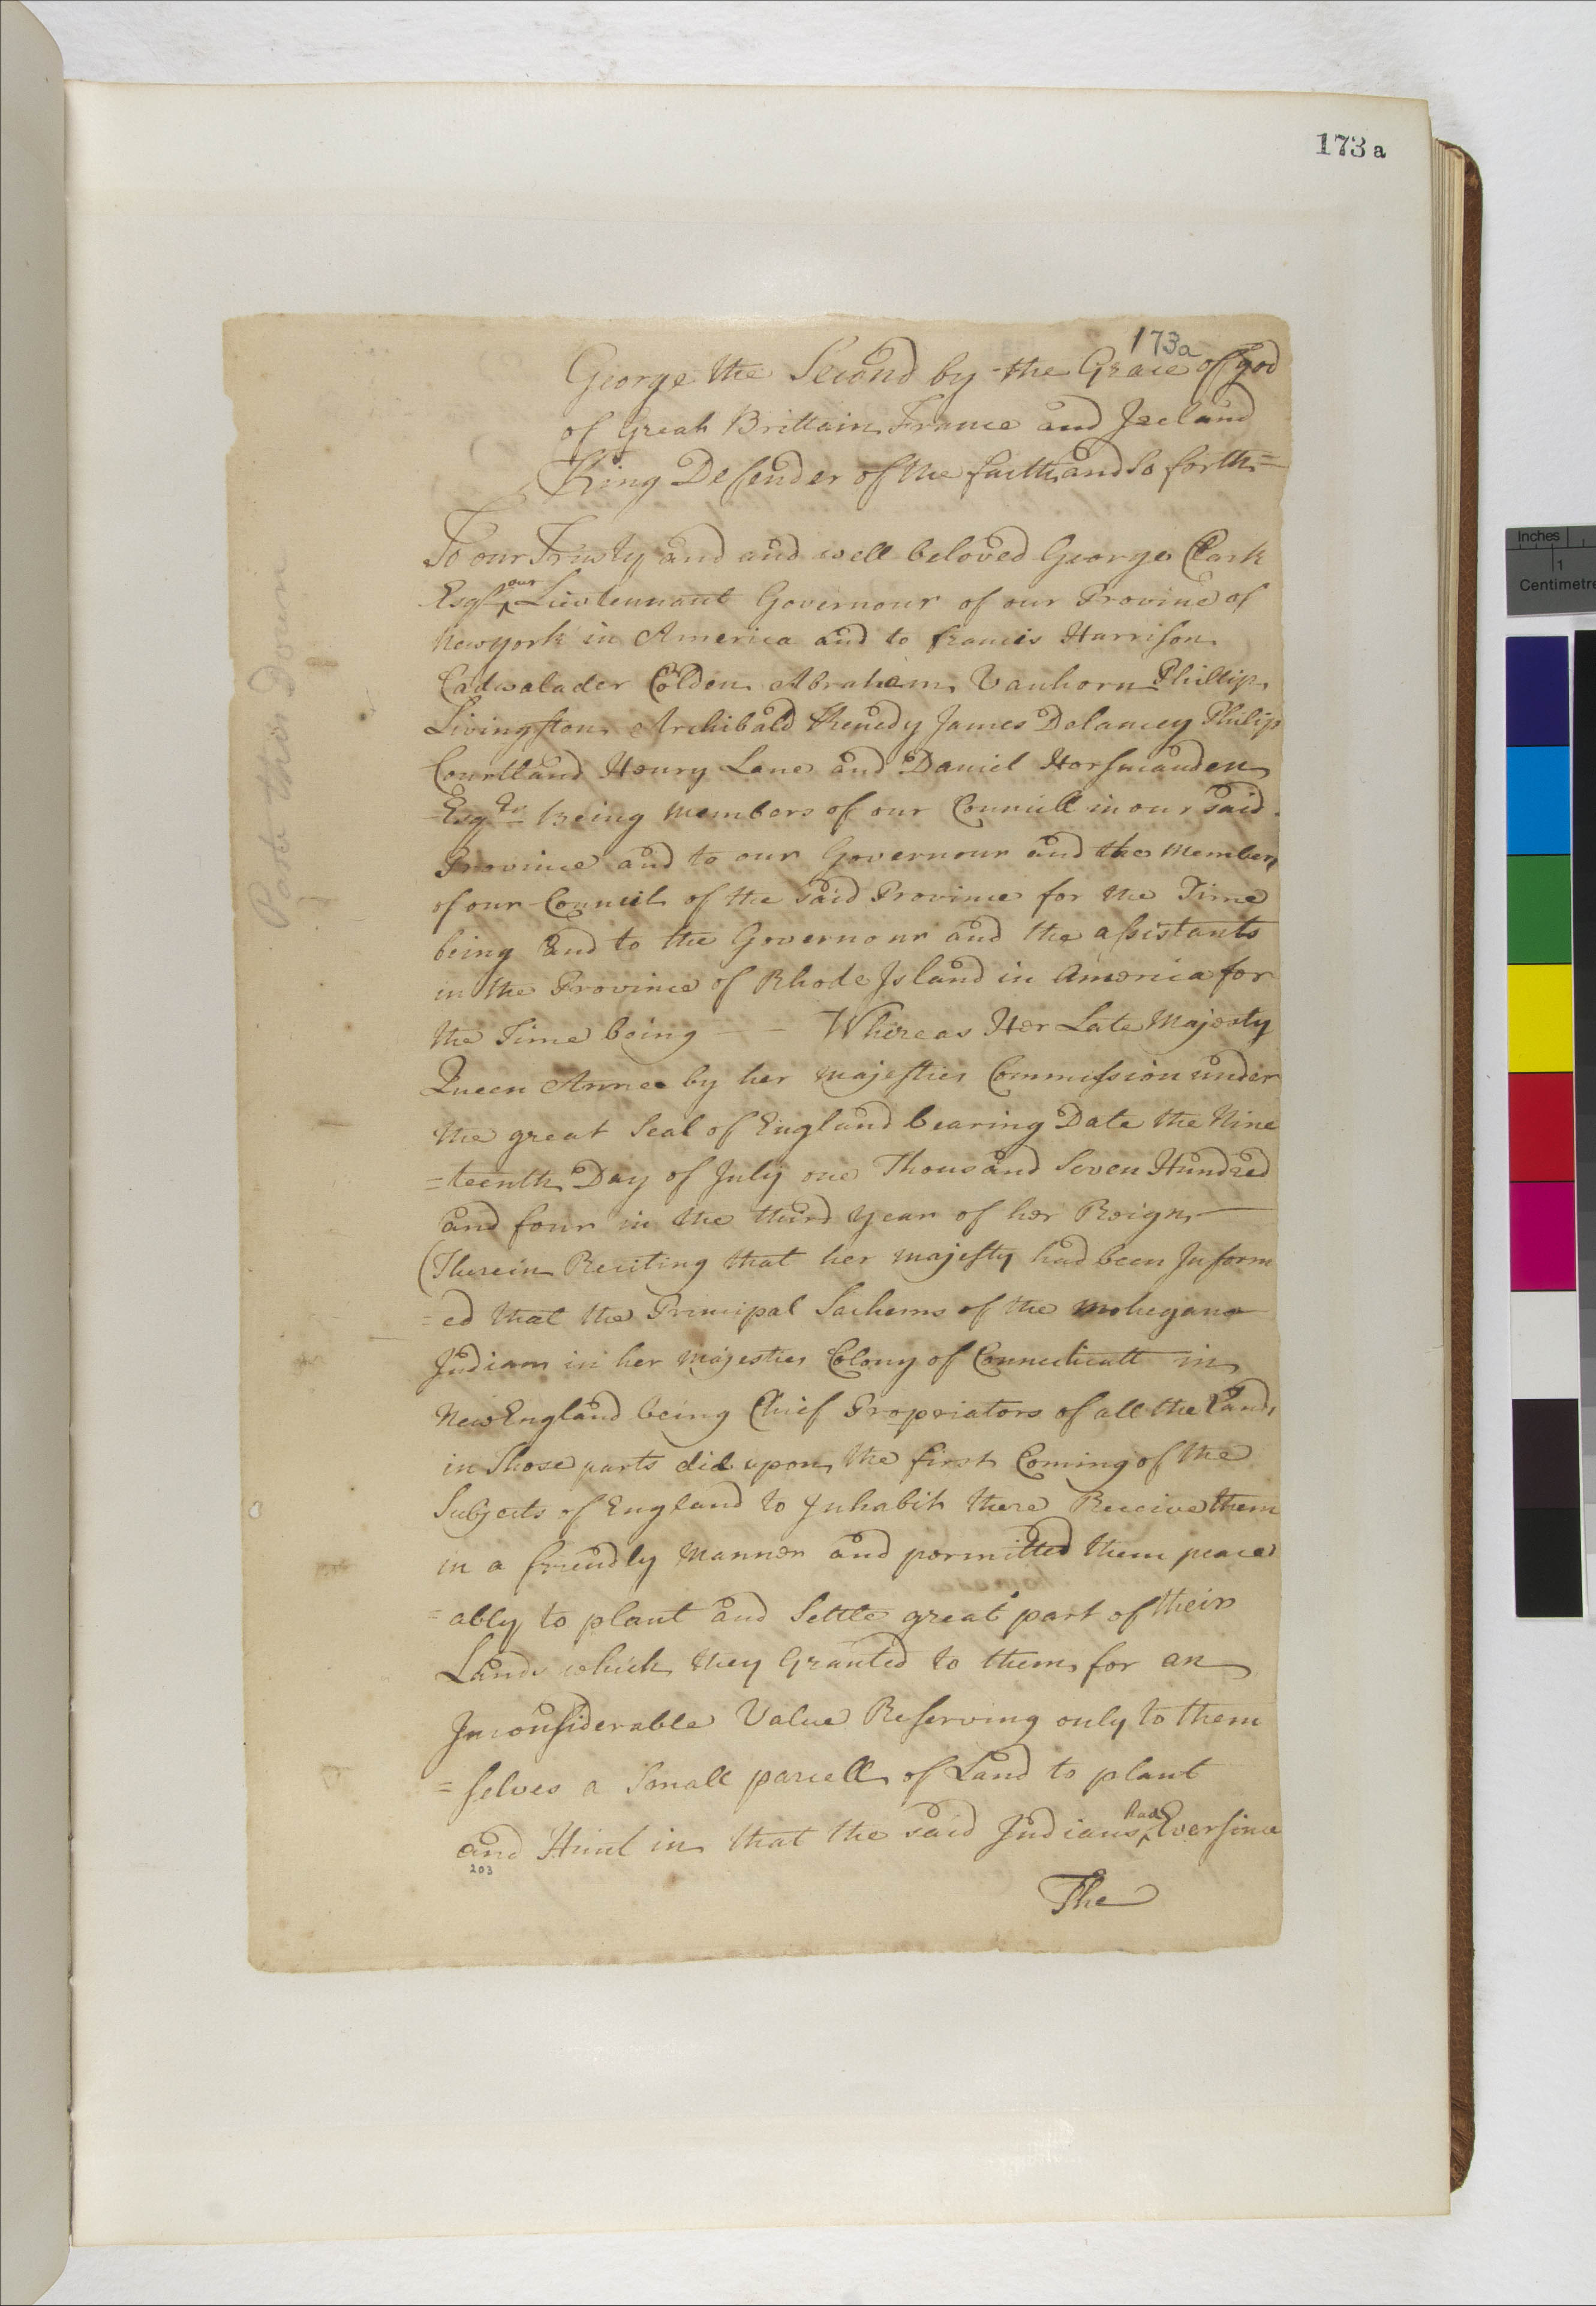 173 a
173a
George the Second by the Grace of god
of Great Brittain France and Ireland
King Defender of the faith and So forth=
To our Trusty and and well beloved George Clark
Esqr our Lieutennant Governour of our Province of
Newyork in America and to francis Harrison
Cadwalader Colden Abraham Vanhorn Phillip
Livingston Archibald Kenedy James Delancey Philip
Courtland Henry Lane and Daniel Horsmanden
Esqrs being members of our Councill in our said
Province and to our Governour and the Members
of our Council of the said Province for the Time
being and to the Governour and the assistants
in the Province of Rhode Island in America for
the Time being — — Whereas Her Late Majesty
Queen Anne by her Majesties Commission under
the great Seal of England bearing Date the Nine
=teenth Day of July one Thousand Seven Hundred
and four in the third year of her Reign —
(Therein Reciting that her majesty had been Inform
=ed that the Principal Sachems of the mohegans
Indians in her Majesties Colony of Connecticutt in
New England being Chief Propriators of all the Lands
in those parts did upon the first Coming of the
Subjects of England to Inhabit there Receive them
in a friendly Manner and permitted them peace
=ably to plant and Settle great part of their
Lands which they Granted to them for an
Inconsiderable Value Reserving only to them
=selves a Small parcell of Land to plant
and Hunt in that the said Indians had Ever since
203
The
Paste this Down
Inches
1
Centimetre